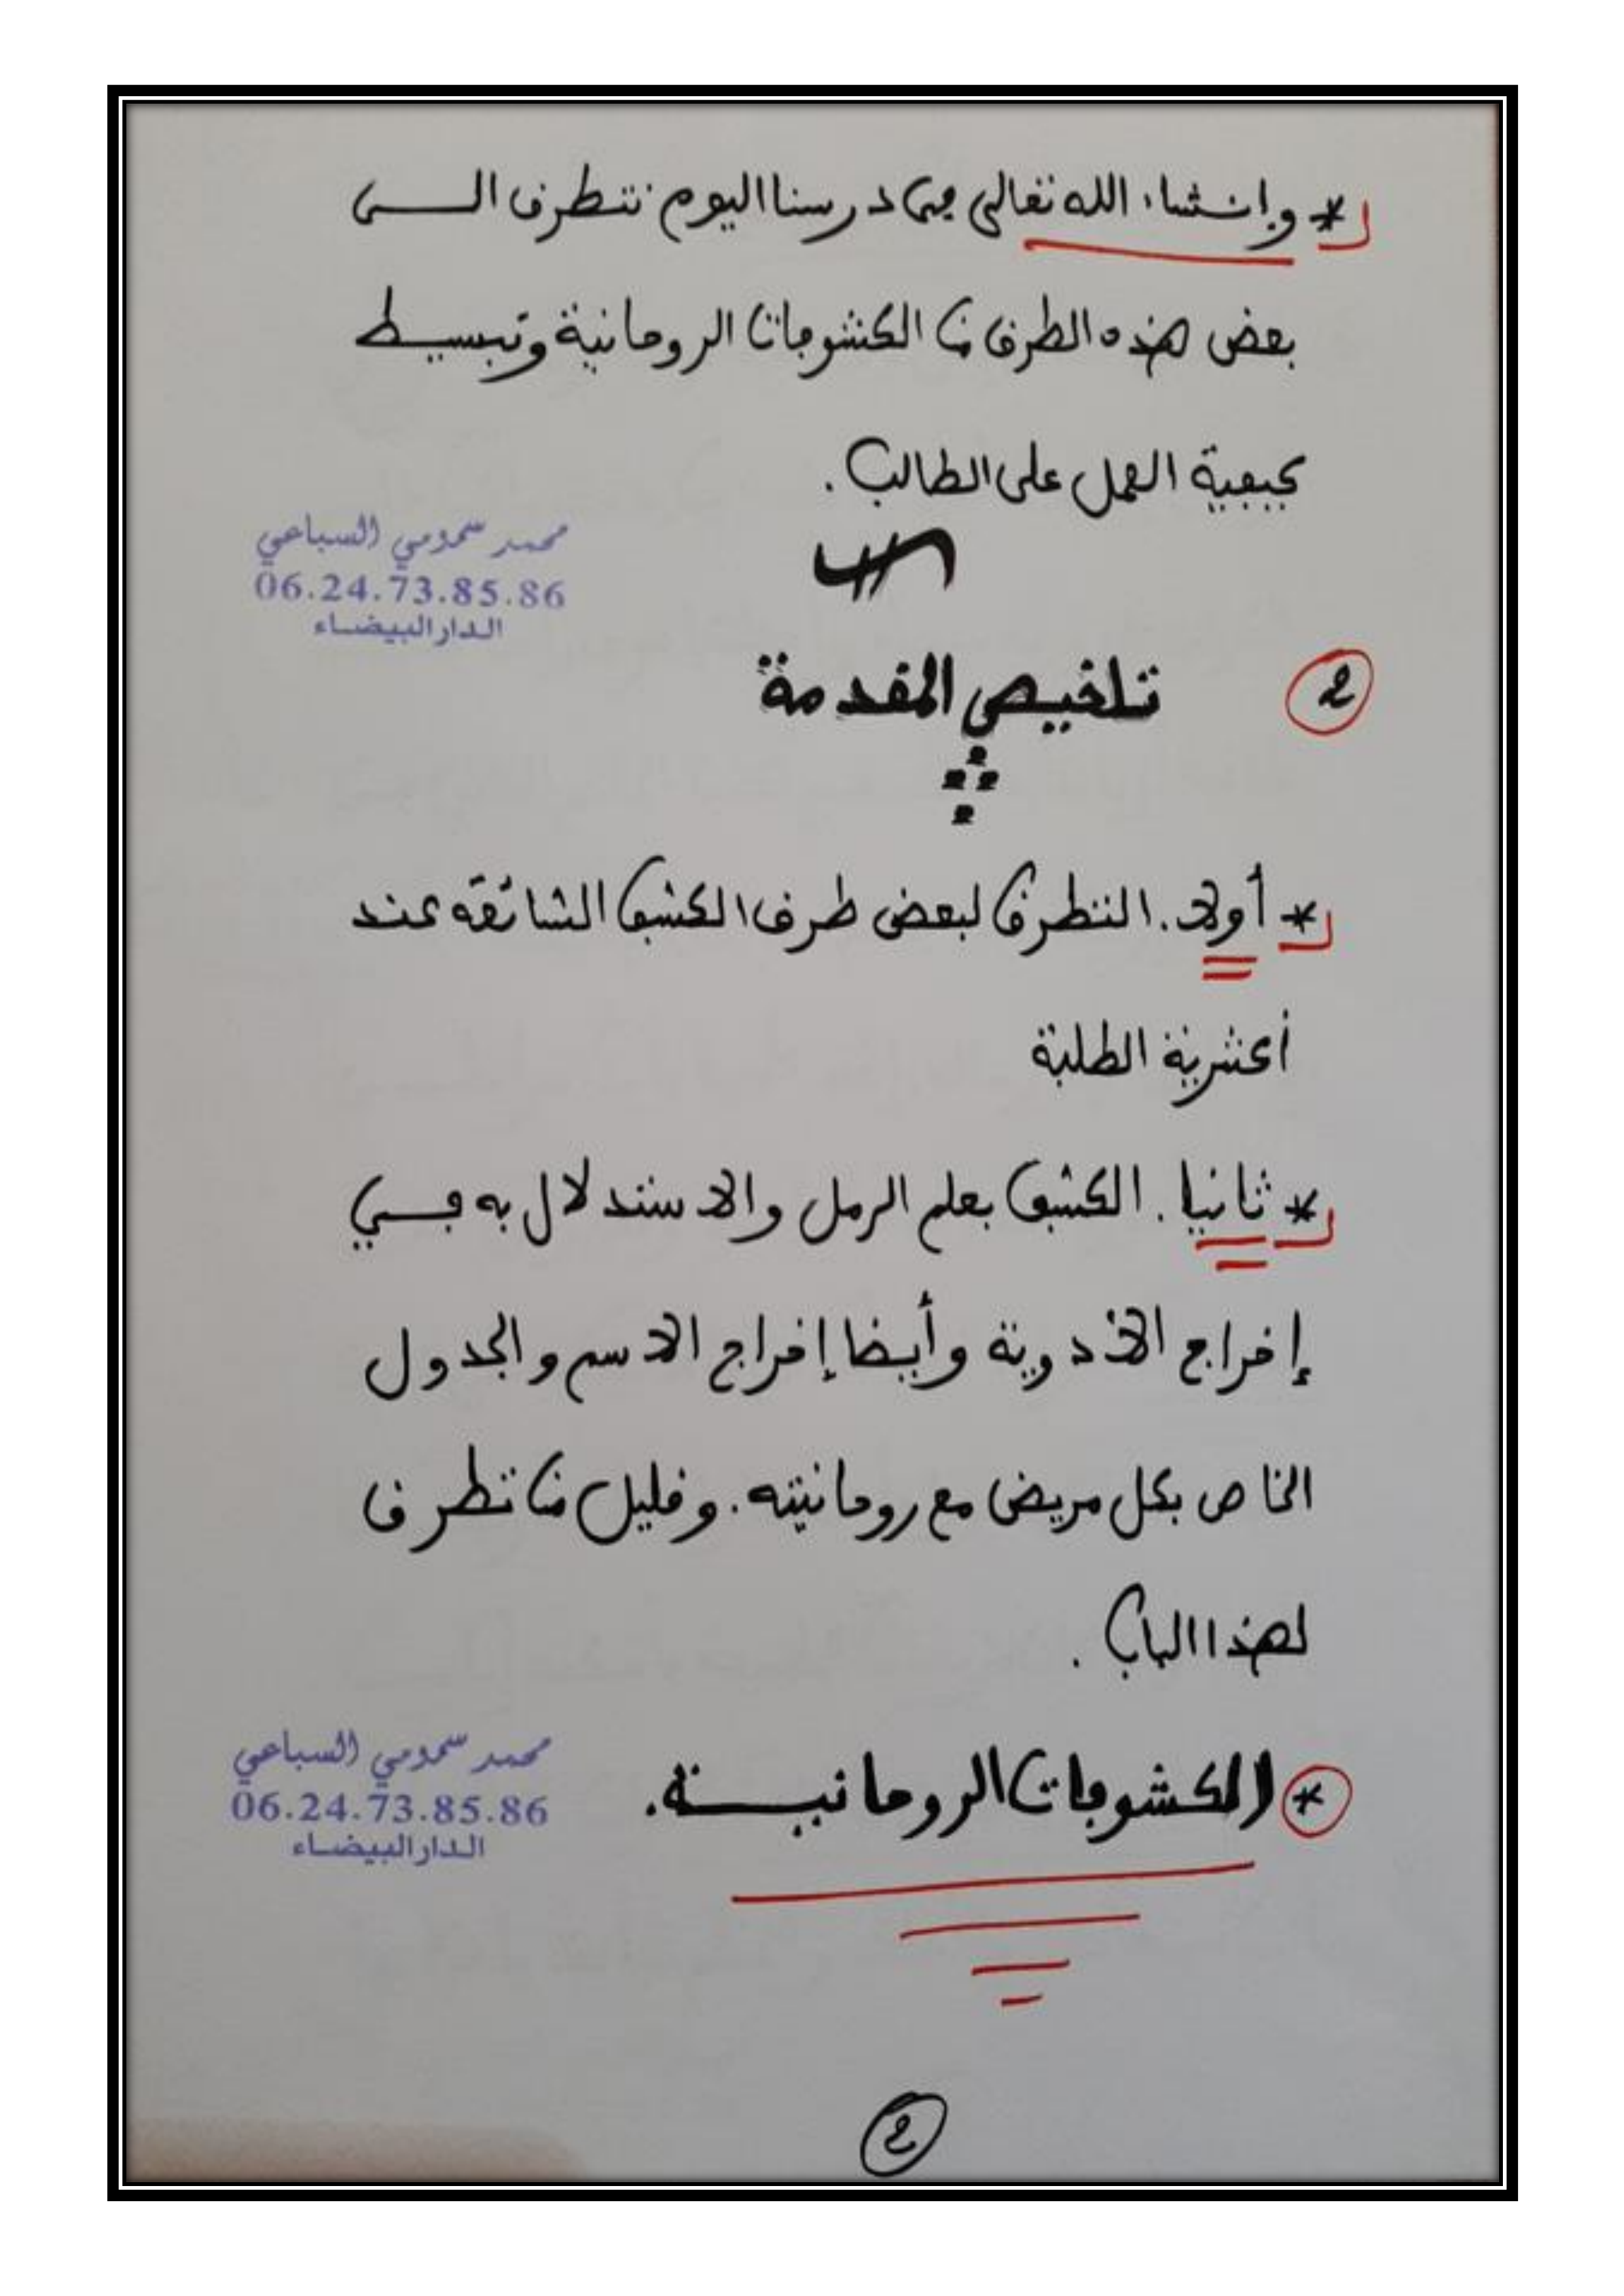 * وإنشاء الله تعالى في درسنا اليوم نتطرق الى
بعض هذه الطرق من الكشوفات الروحانية وتبسيط
كيفية العمل على الطالب.
محمد سمومي السباعي
06.24.73.85.86
الدار البيضاء
2 تلخيص المقدمة
* أولا. التطرق لبعض طرق الكشف الشائعة عند
أكثرية الطلبة
* ثانيا. الكشف بعلم الرمل والاستدلال به في
إخراج الأدوية وأيضا إخراج الاسم والجدول
الخاص بكل مريض مع روحانيته. وقليل من تطرق
لهذا الباب.
* الكشوفات الروحانية.
محمد سمومي السباعي
06.24.73.85.86
الدار البيضاء
2